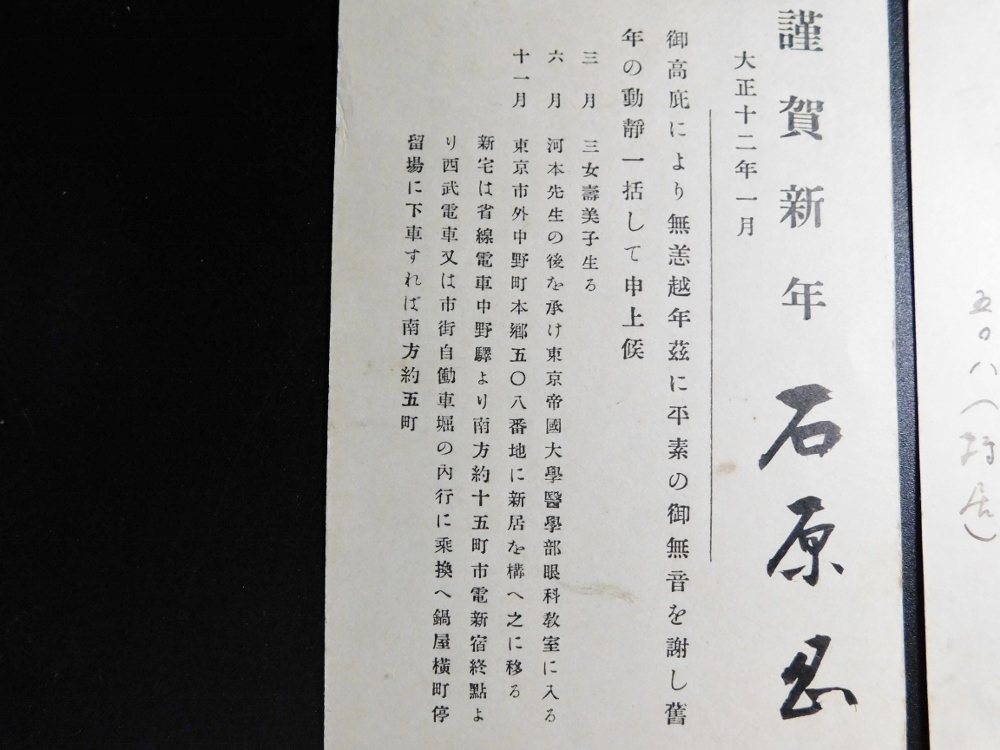 五〇八（
謹賀新年　石原忍
大正十二年一月
御高庇により無恙越年茲に平素の御無音を謝し舊
年の動靜一括して申上候
三　月　三女壽美子生る
六　月　河本先生の後を承け東京帝國大學醫學部眼科敎室に入る
十一月　東京市外中野町本鄕五〇八番地に新居を構へ之に移る
新宅は省線電車中野驛より南方約十五町市電新宿終點よ
り西武電車又は市街自働車堀の內行に乘換へ鍋屋橫町停
留場に下車すれば南方約五町